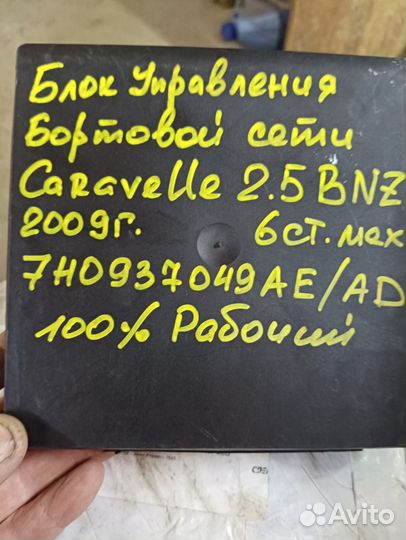 Блок Управления
Бортовой сети
Caravelle 2.5 BNZ
2009г. 6ст. мех
7H0937049AE/AD
100% Рабочий
Avito